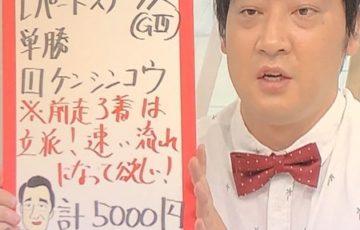 レパードステークス(GⅢ)
単勝
11 ケンシンコウ
※前走3着は
立派!速い流れ
になって欲しい!
計5000円